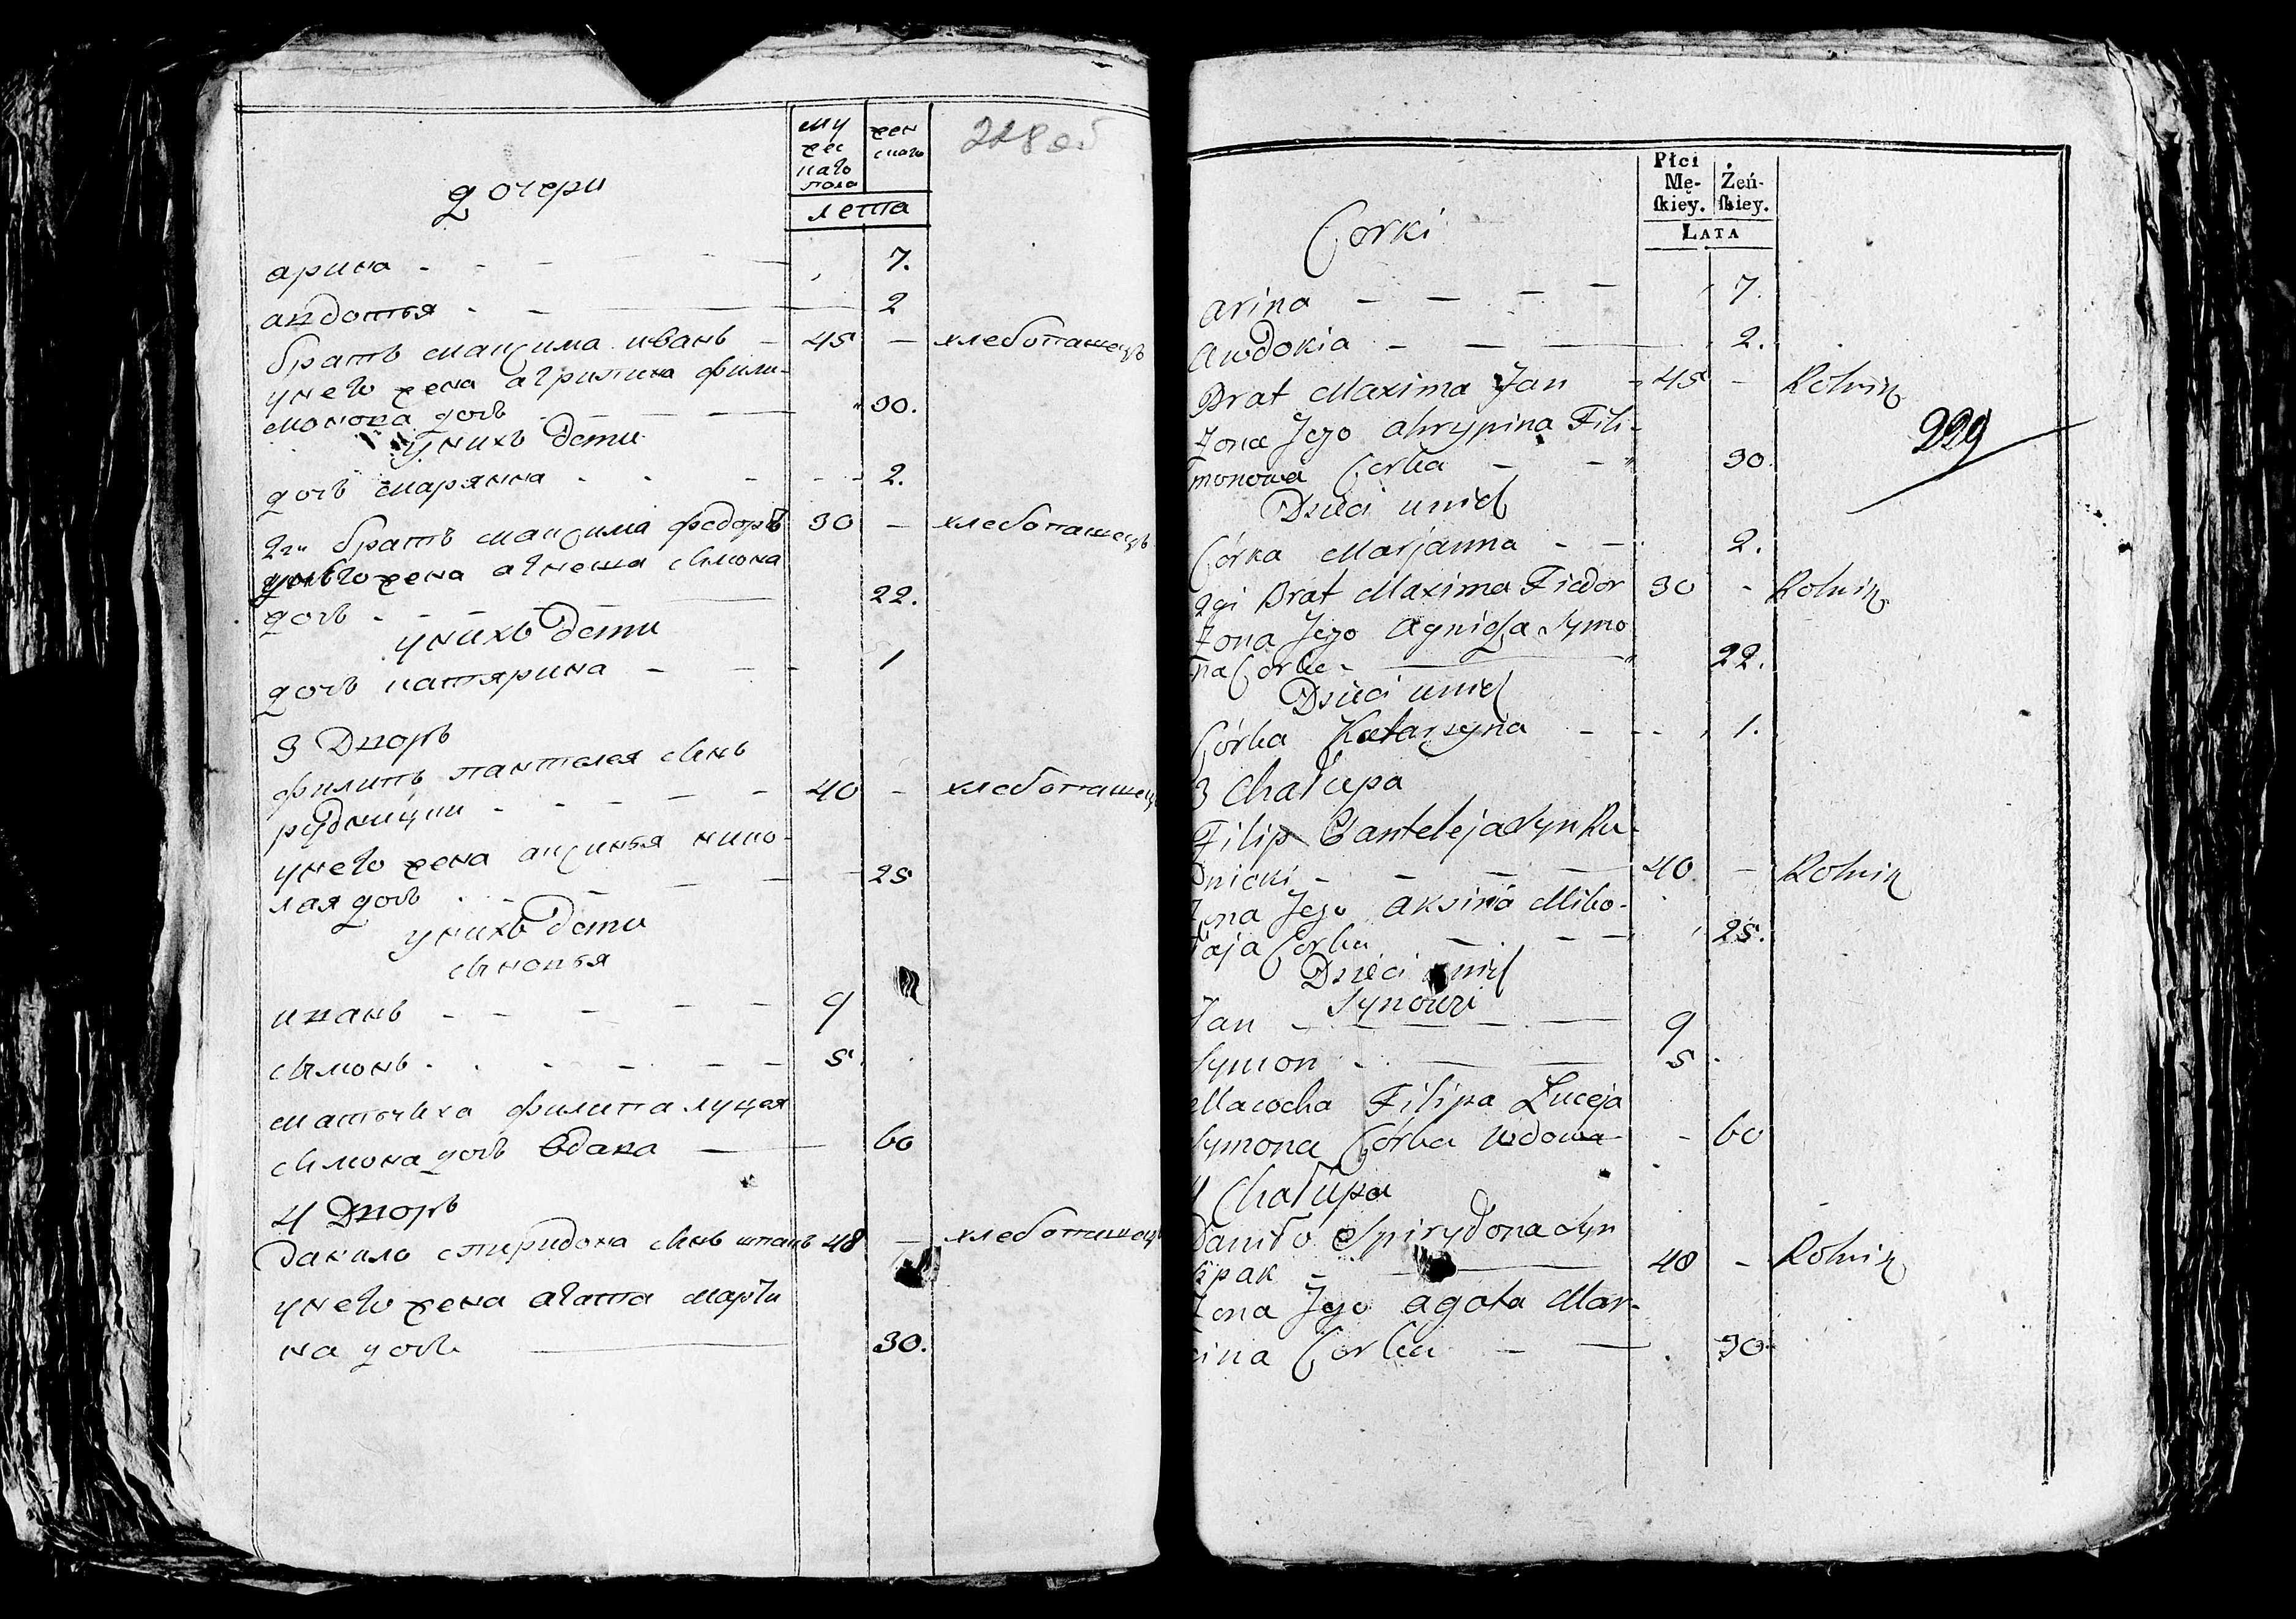 му
жес
каго
пола
жен
скаго
лета
228 об
дочери
арина - - - - 7.
авдотья - - 2
братъ максима иванъ - 45 - хлебопашецъ
унего жена агрипина фили-
монова дочь - - - 30.
унихъ дети
дочь марянна - - - 2.
2ги братъ максима федоръ 30 - хлебопашецъ
унего жена агнеша сымона
дочь - - - 22.
унихъ дети
дочь катярина - - - 1
3 Дворъ
филипъ пантелея сынъ
рудницки - - - - - 40 - хлебопашецъ
унего жена аксинья нико-
лая дочь - - - 25
унихъ дети
сыновья
иванъ - - - - 9
сымонъ - - - - - 5
матчиха филипа луцея
сымона дочь вдава - 60
4 Дворъ
данило спиридона сынъ шпакъ 48 - хлебопашецъ
унего жена агата марты
на дочь - 30.
Płci
Mę-
ſkiey.
Żeń-
ſkiey.
LATA
Corki
arina - - - - 7.
awdokia - - - - 2.
Brat Maxima Jan - 45 - Rolnik
229
Zona Jego ahrypina Fili-
monowa Corka - - 30.
Dzieci unich
Córka Marjanna - - 2.
2gi Brat Maxima Fiador 30 - Rolnik
Zona Jego Agnisza Symo
na Corka - 22.
Dzieci unich
Córka Katarzyna - - - 1.
3 Chałupa
Filip Panteleja Syn Ru-
dnicki - - - - 40. - Rolnik
Zona Jego aksinia Miko-
łaja Corka - - - 25.
Dzieci unich
Synowi
Jan - - - - 9
Symon - - - 5
Macocha Filipa Łuceja
Symona Córka Wdowa - - 60
4 Chałupa
Daniło Spirydona Syn
Szpak - - 48 - Rolnik
Zona Jego agata Mar-
cina Corka - - 30.